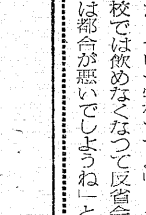 校では飲めなくなつて反省会
は都合が悪いでしようね」と